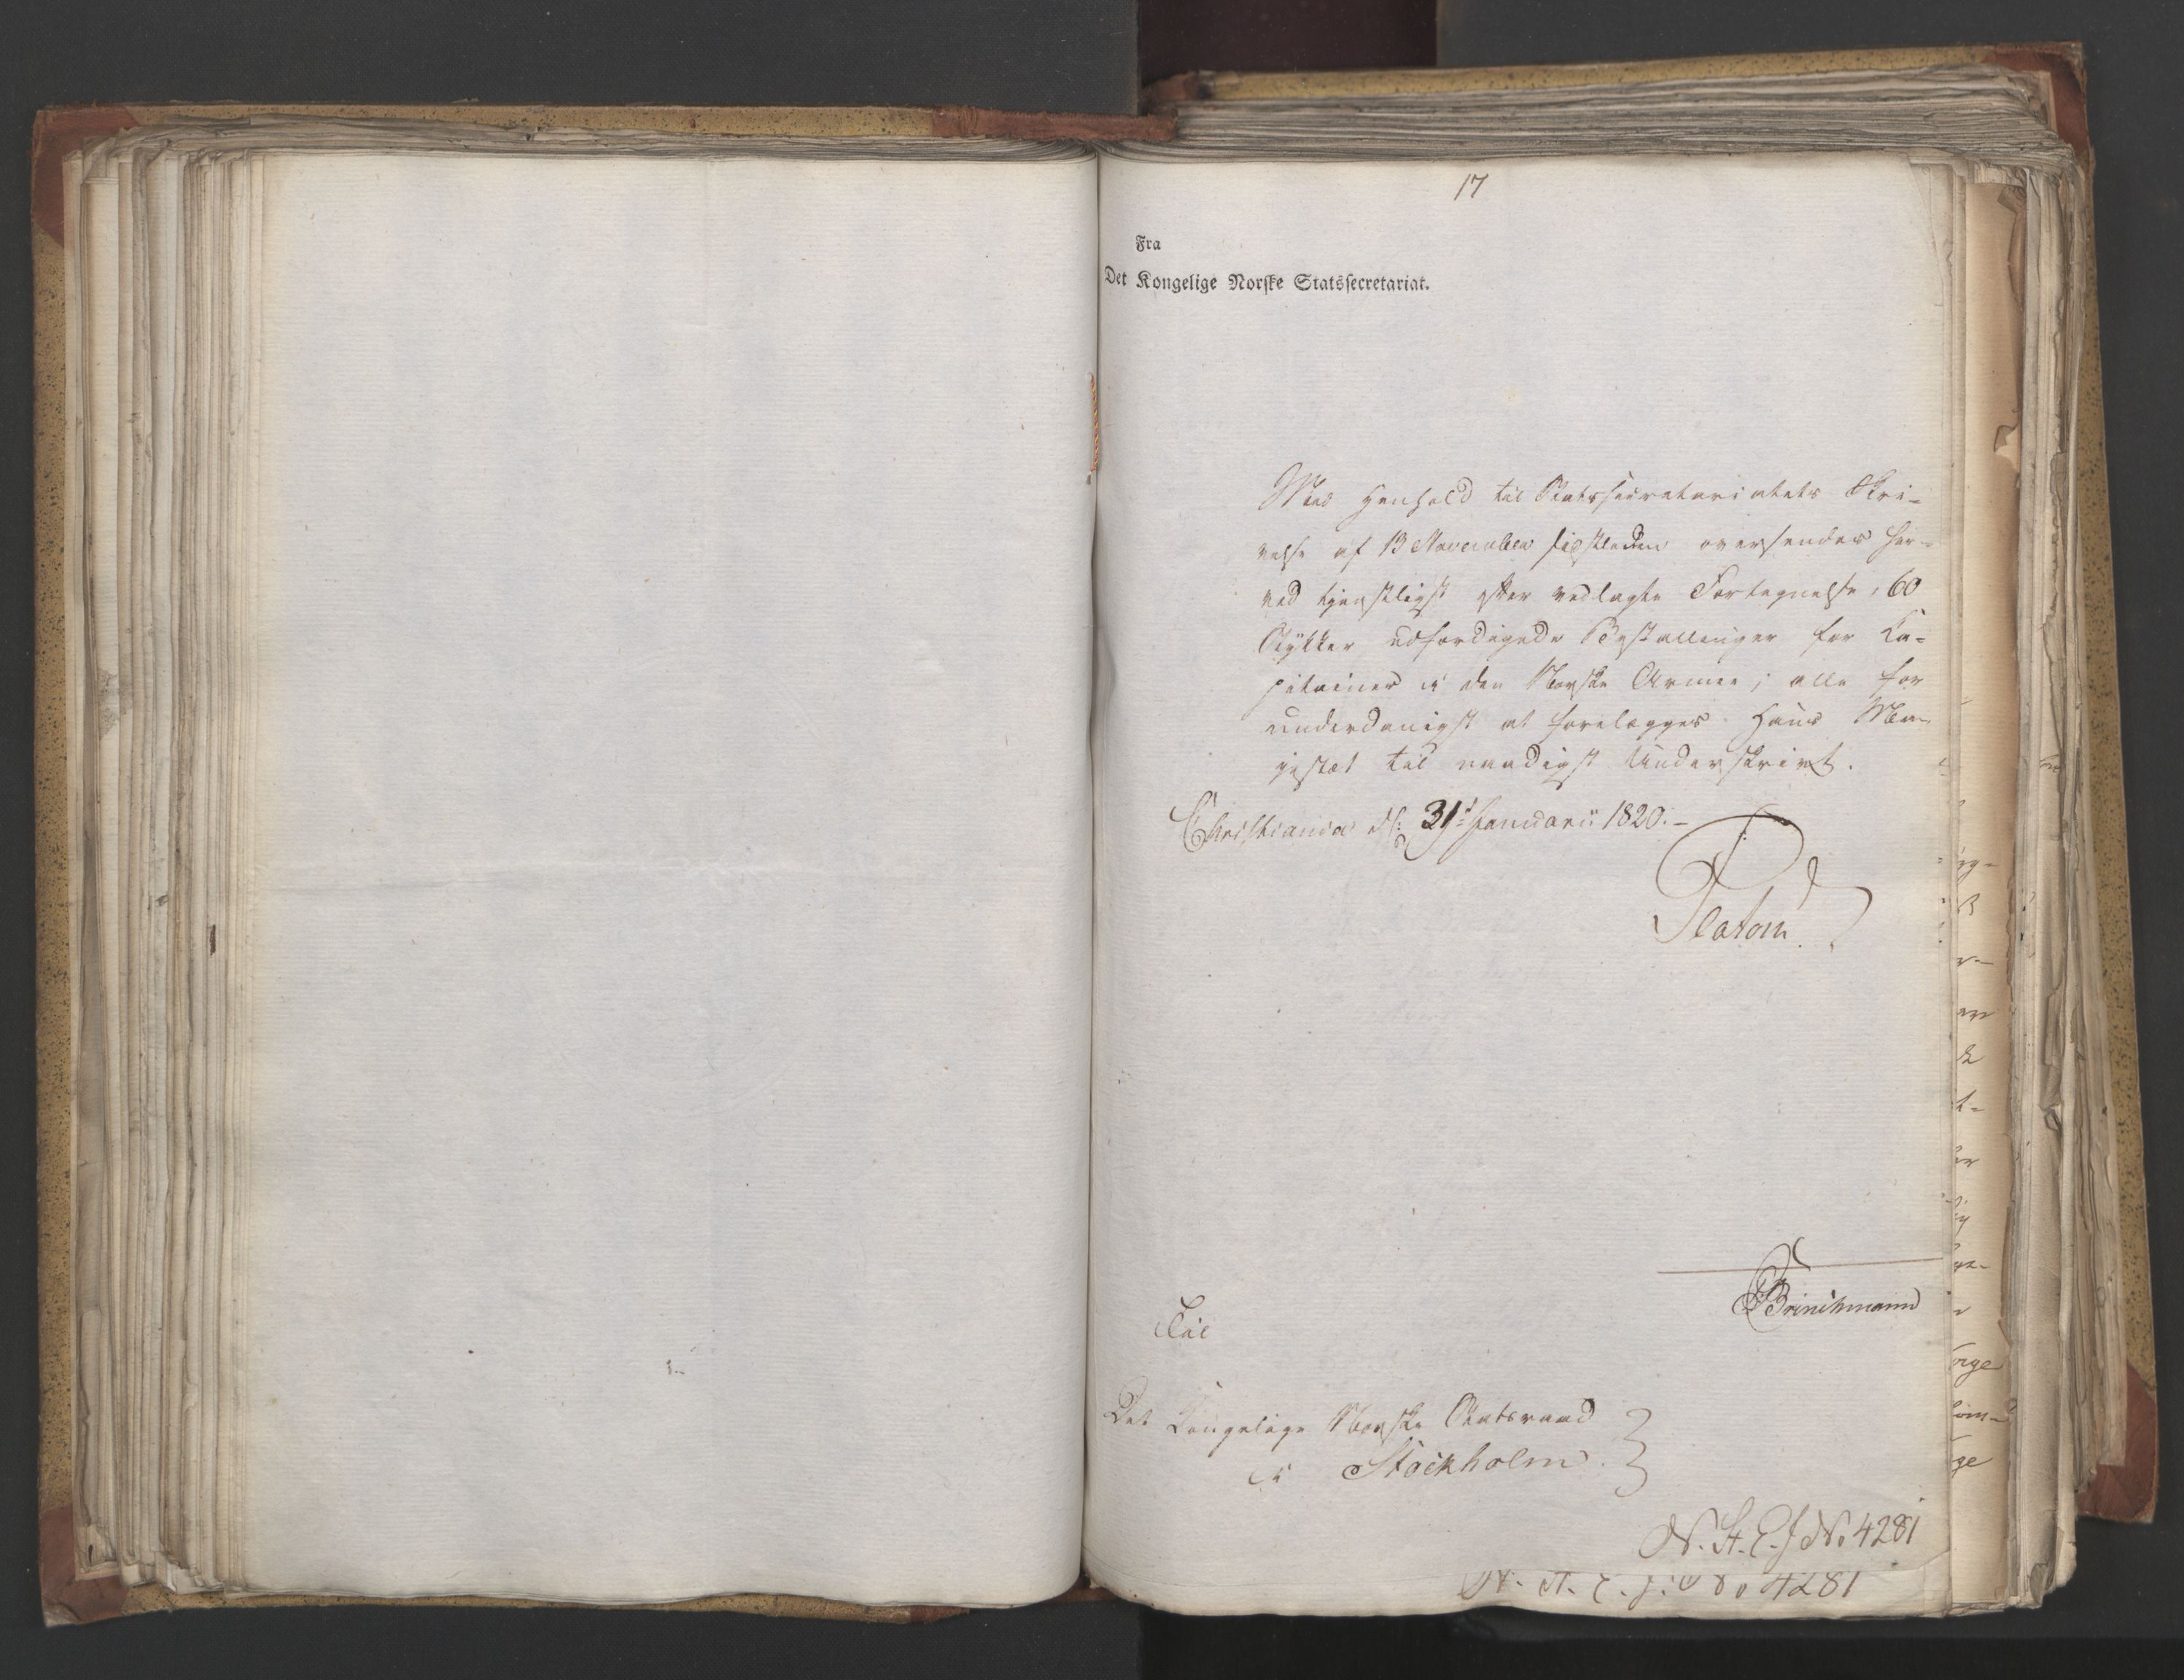 17
Fra
Det Kongelige Norske Statssecretariat.
Med Henhold til Statssecretariatets Skri-
velse af 13 November sidstleden oversendes her-
ved tjenstligst efter vedlagte Fortegnelse, 60
Stykker udfærdigede Bestallinger for Ca-
pitainer i den Norske Armee; alle for
underdanigst at forelægges Hans Ma-
jestæt til naadigst Underskrivt.
Christiania d: 31t Januarii 1820.-
Platou.
Brinchmann
Til
Det Kongelige Norske Statsraad
i Stockholm.
N. St. C. J No 4281
N. St. C. J. No 4281